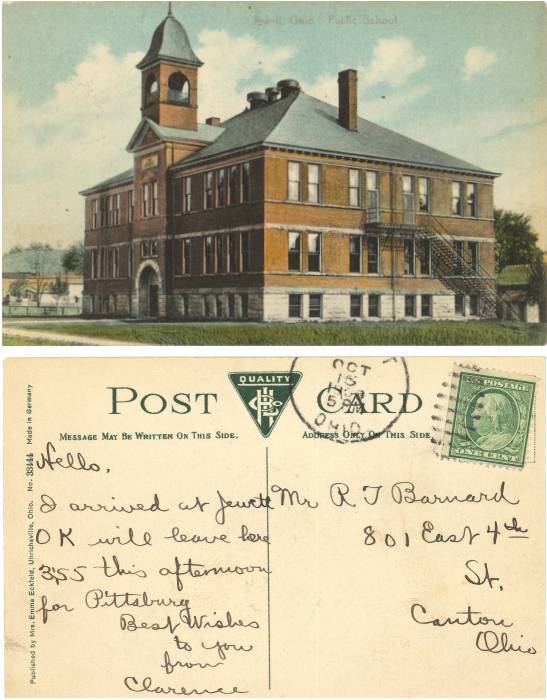 Jewett, Ohio. Public School
QUALITY
POST CARD
MESSAGE MAY BE WRITTEN ON THIS SIDE.
ADDRESS ONLY ON THIS SIDE.
Published by Mrs. Emma Eckfeld, Uhrichsville, Ohio. No. 39444 Made in Germany
Hello,
I arrived at Jewett
OK will leave here
3;55 this afternoon
for Pittsburg
Best Wishes
to you
from
Clarence
OCT
OHIO
POSTAGE
ONE CENT
Mr R T Barnard
801 East 4th
St,
Canton
Ohio